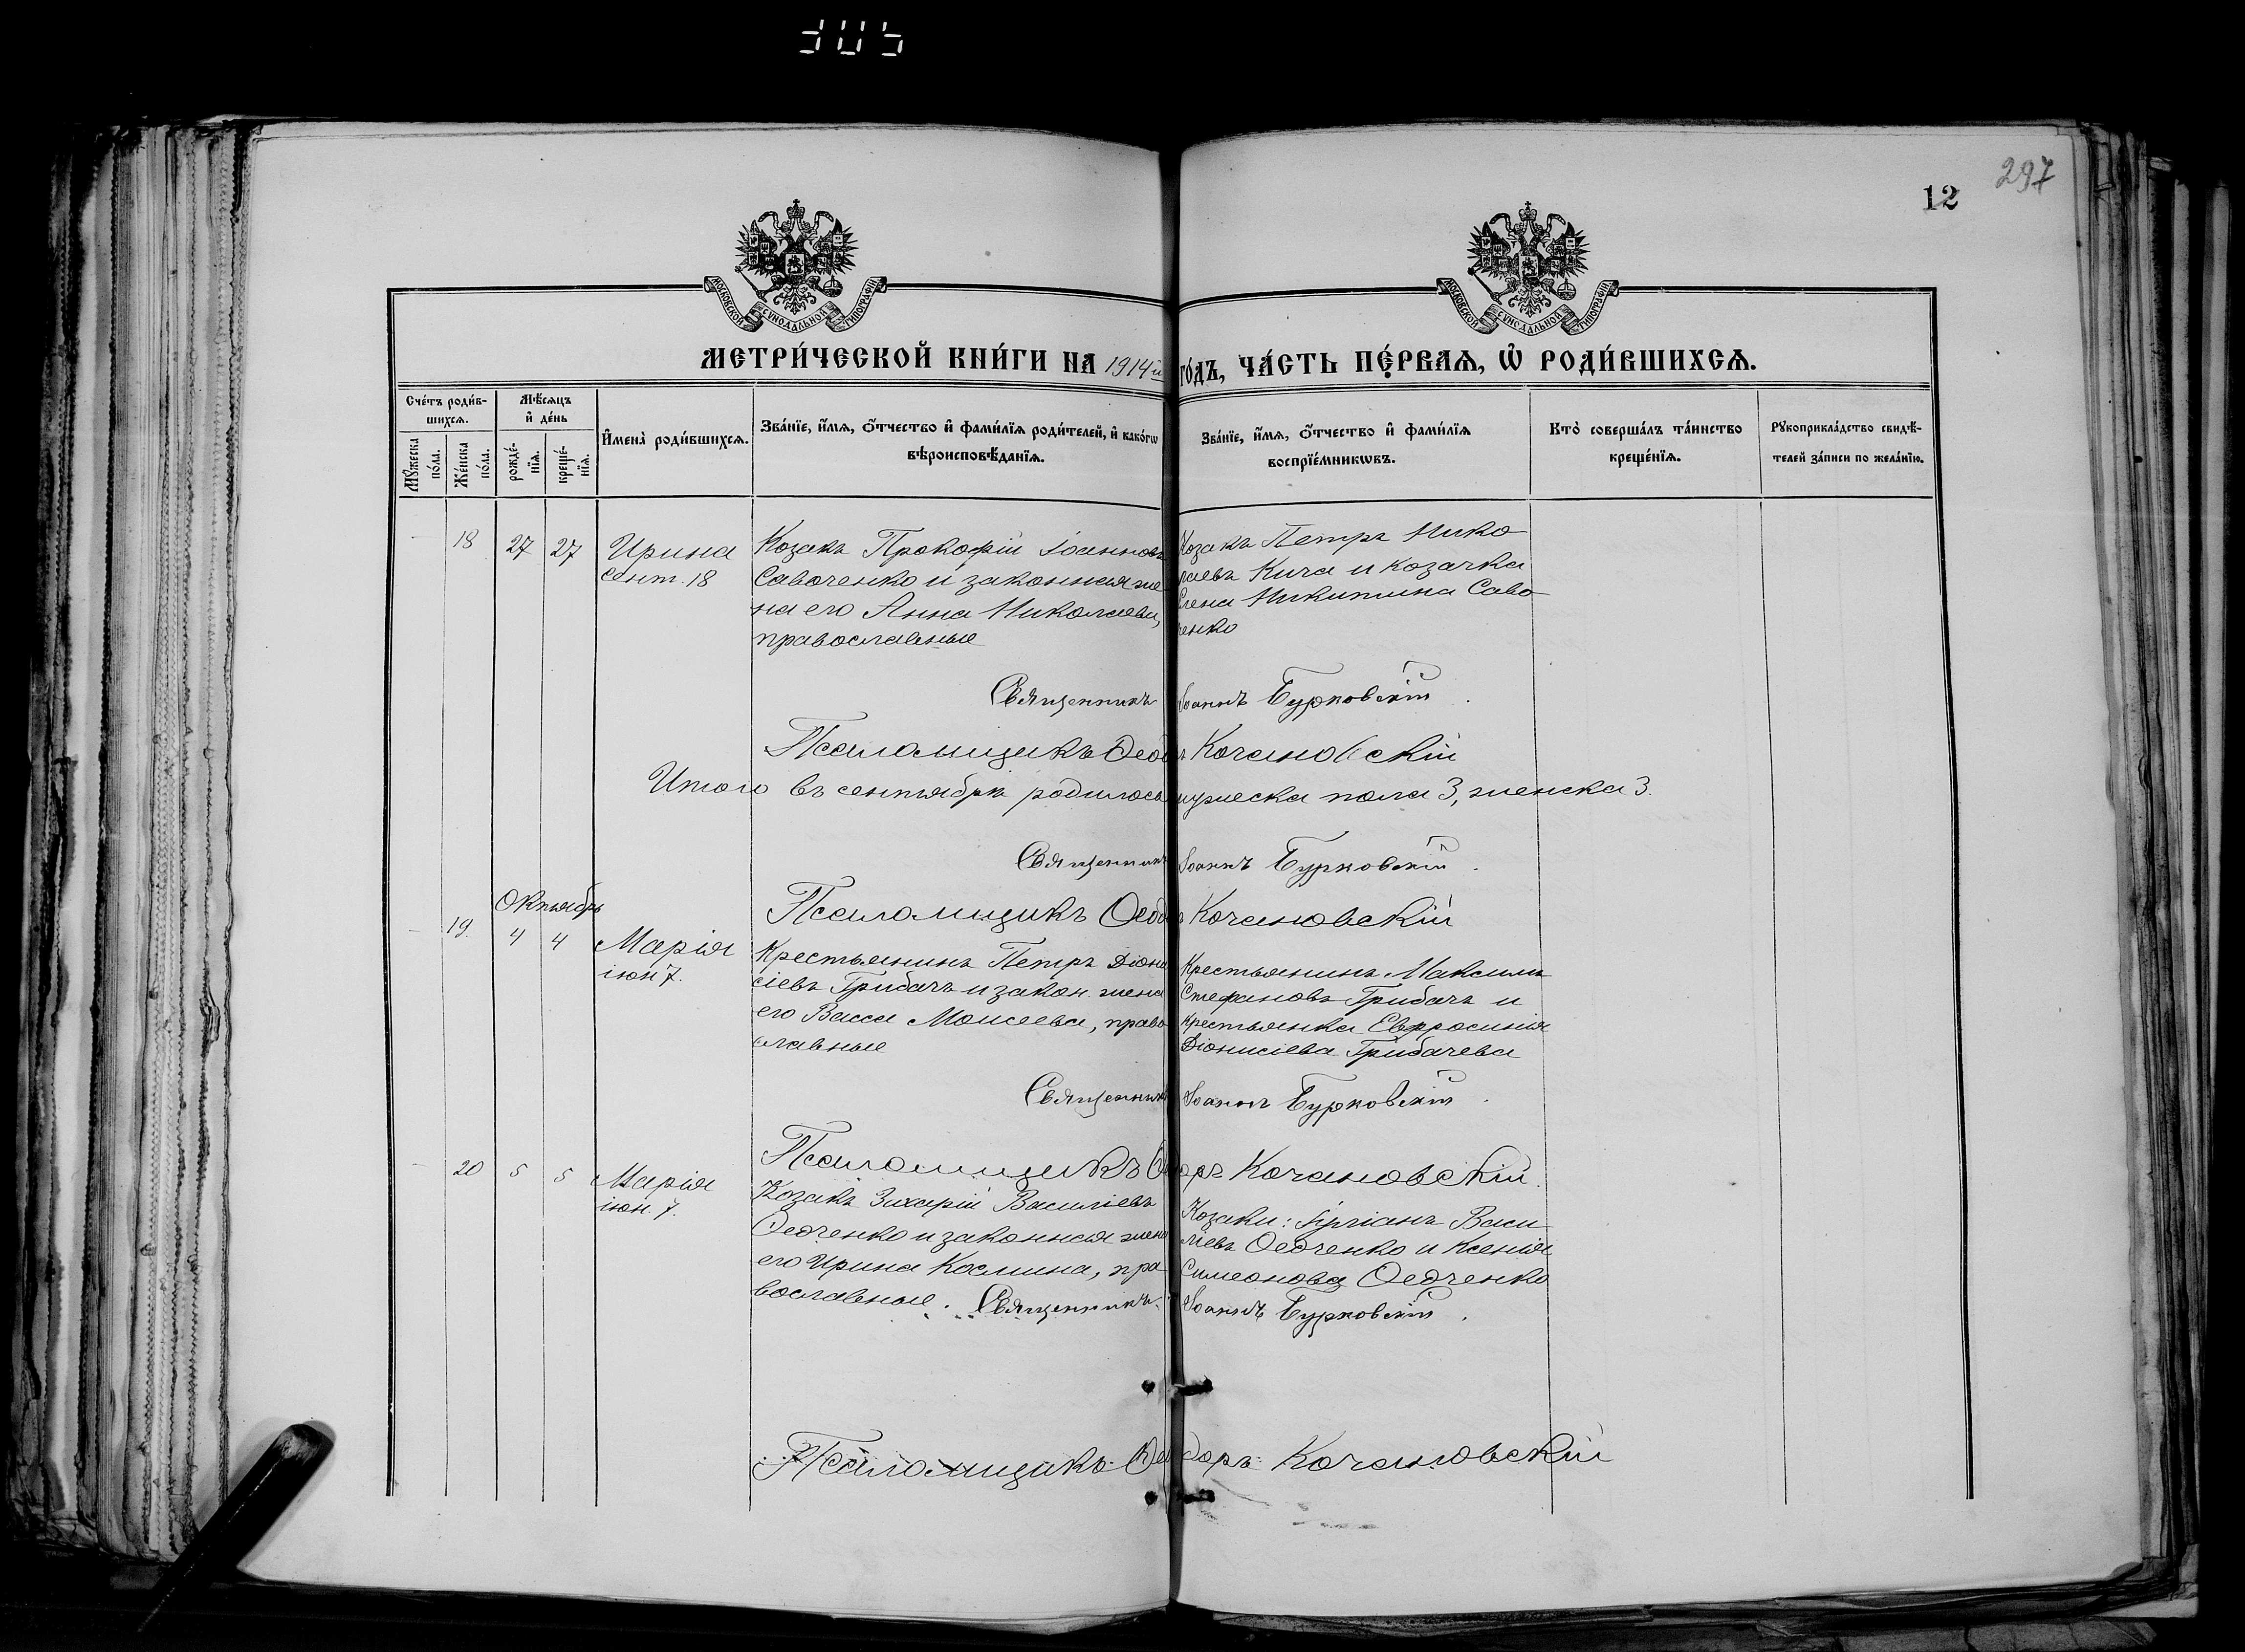 305
297
12
МОСКОВСКОЙ СѴНОДАЛЬНОЙ ТИПОГРАФІИ
МОСКОВСКОЙ СѴНОДАЛЬНОЙ ТИПОГРАФІИ
МЕТРИ́ЧЕСКОЙ КНИ́ГИ НА 1914й ГО́ДЪ, ЧА́СТЬ ПЕ́РВАЯ, Ѡ҆ РОДИ́ВШИХСЯ.
Сче́тъ роди́в-
шихся.
Мꙋжеска по́ла.
Же́нска по́ла.
Мѣ́сяцъ
и҆ де́нь
рожде́-нїя.
креще́-нїя.
И҆мена̀ роди́вшихся.
Зва́нїе, и҆́мя, ѻ҆́тчество и҆ фами́лїя роди́телей, и҆ како́гѡ
вѣроисповѣ́данїя.
Зва́нїе, и҆́мя, ѻ҆́тчество и҆ фами́лїя
воспрїе́мникѡвъ.
Кто̀ соверша́лъ та́инство
креще́нїя.
Рꙋкоприкла́дство свидѣ́-
телей за́писи по жела́нїю.
18 27 27 Ирина
сент. 18
Козакъ Прокофій Іоанновъ
Савоченко и законная же-
на его Анна Николаева,
православные
Козакъ Петръ Нико
лаевъ Кича и козачка
Елена Никитина Саво
ченко
Священникъ Іоаннъ Бурковскій.
Псаломщикъ Ѳеодоръ Кочановскій
Итого въ сентябрѣ родилось мужеска пола 3, женска 3.
Священникъ Іоаннъ Бурковскій.
Псаломщикъ Ѳеодоръ Кочановскій
Октябрь
19. 4 4 Марія
іюн 7.
Крестьянинъ Петръ Діони
сіевъ Грибачъ и закон. жена
его Васса Моисеева, право
славные
Крестьянинъ Максимъ
Стефановъ Грибачъ и
крестьянка Евфросинія
Діонисіева Грибачева
Священникъ Іоаннъ Бурковскій.
Псаломщикъ Ѳеодоръ Кочановскій.
20 5 5 Марія
іюн. 7.
Козакъ Захарій Василіевъ
Ѳедченко и законная жена
его Ирина Космина, пра
вославные.
Козаки: Васи
ліевъ Ѳедченко и Ксенія
Симеонова Ѳедченко
Священникъ Іоаннъ Бурковскій.
Псаломщикъ Ѳеодоръ Кочановскій